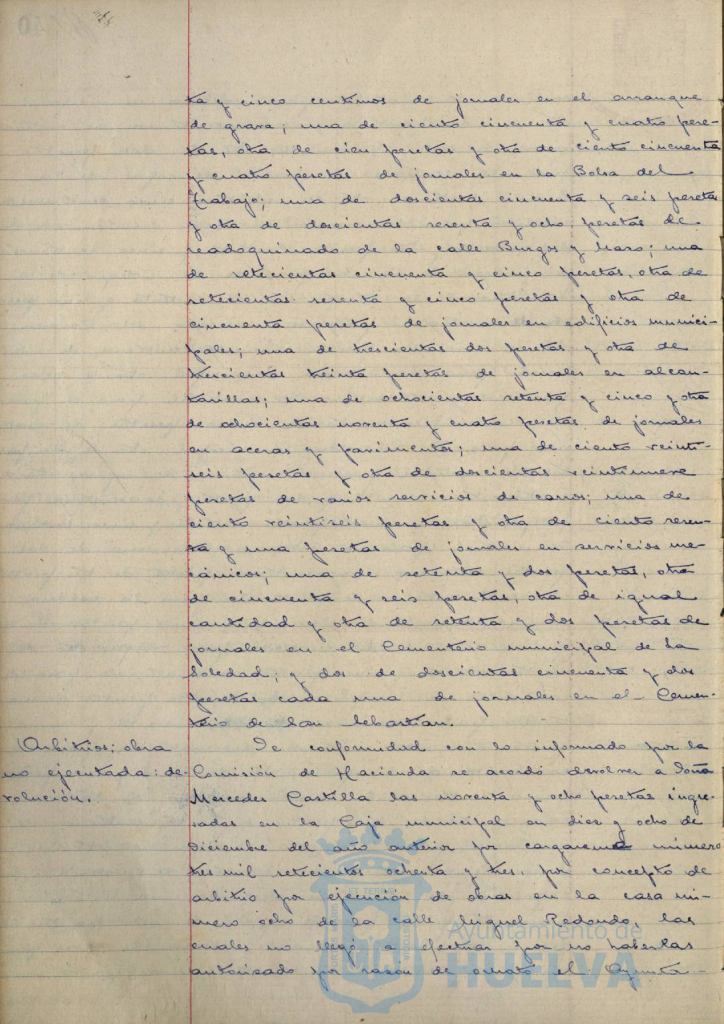 ta y cinco centimos de jornales en el arranque
de grava; una de ciento cincuenta y cuatro pese-
tas, otra de cien pesetas y otra de ciento cincuenta
y cuatro pesetas de jornales en la Bolsa del
Trabajo; una de doscientas cincuenta y seis pesetas
y otra de doscientas sesenta y ocho pesetas de
readoquinado de la calle Burgos y Mazo; una
de setecientas cincuenta y cinco pesetas, otra de
setecientas sesenta y cinco pesetas y otra de
cincuenta pesetas de jornales en edificios munici-
pales; una de trescientas dos pesetas y otra de
trescientas treinta pesetas de jornales en alcan-
tarillas; una de ochocientas setenta y cinco y otra
de ochocientas noventa y cuatro pesetas de jornales
en aceras y pavimentos; una de ciento veinti-
seis pesetas y otra de doscientas veintinueve
pesetas de varios servicios de carros; una de
ciento veintiseis pesetas y otra de ciento sesen-
ta y una pesetas de jornales en servicios me-
cánicos; una de setenta y dos pesetas, otra
de cincuenta y seis pesetas, otra de igual
cantidad y otra de setenta y dos pesetas de
jornales en el Cementerio municipal de La
Soledad; y dos de doscientas cincuenta y dos
pesetas cada una de jornales en el Cemen-
terio de San Sebastian.
Arbitrios; obra
no ejecutada: de-
volución.
De conformidad con lo informado por la
Comisión de Hacienda se acordó devolver a Doña
Mercedes Castilla las noventa y ocho pesetas ingre-
sadas en la Caja municipal en diez y ocho de
Diciembre del año anterior por cargareme número
tres mil setecientos ochenta y tres, por concepto de
arbitrio por ejecución de obras en la casa nú-
mero ocho de la calle Miguel Redondo, las
cuales no llegó a efectuar por no haberlas
autorizado por razón de ornato el Ayunta-
Ayuntamiento de
HUELVA